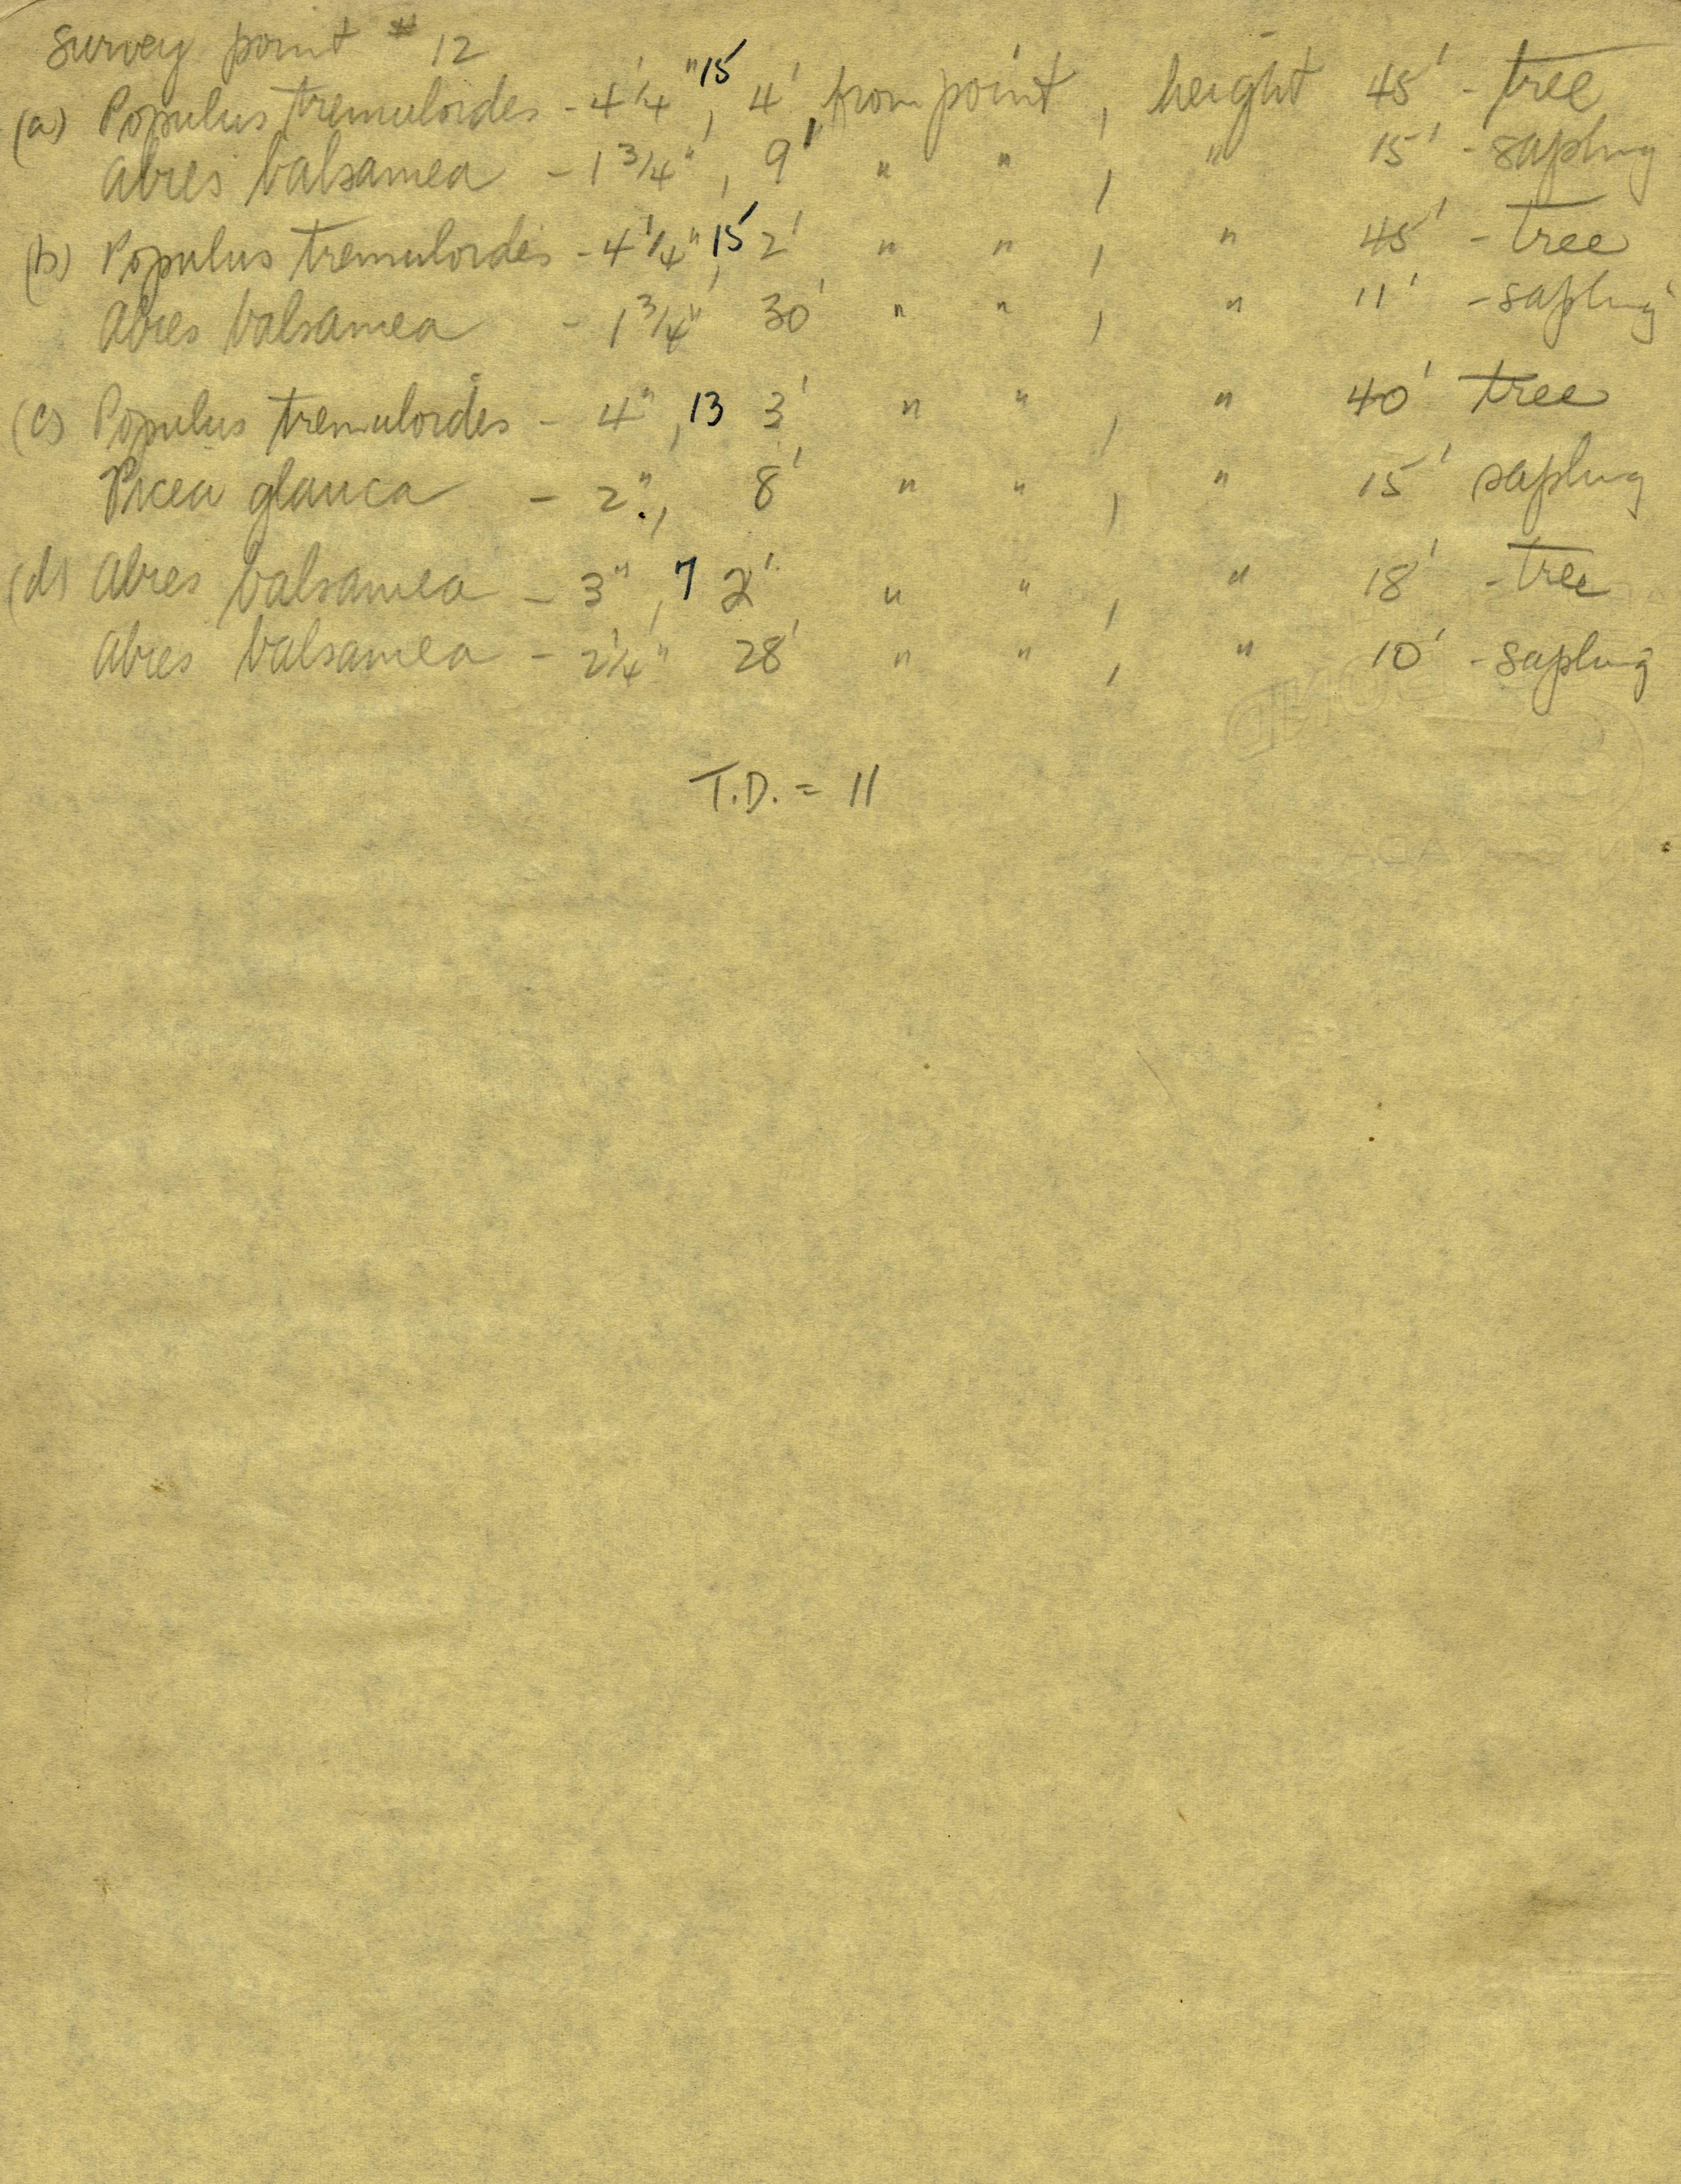 Survey point # 12
(a) Populus tremuloides - 4 1/4", 15 4' from point, height 45' - tree
Abies balsamea - 1 3/4", 9' " ", " 15' - sapling
(b) Populus tremuloides - 4 1/4", 15 2' " ", " 45' - tree
Abies balsamea - 1 3/4" 30' " ", " 11' - sapling
(c) Populus tremuloides - 4", 13 3' " ", " 40' tree
Picea glauca - 2", 8' " ", " 15' sapling
(d) Abies balsamea - 3", 7 2' " ", " 18' - tree
Abies balsamea - 2 1/4" 28' " ", " 10' - sapling
T.D. = 11